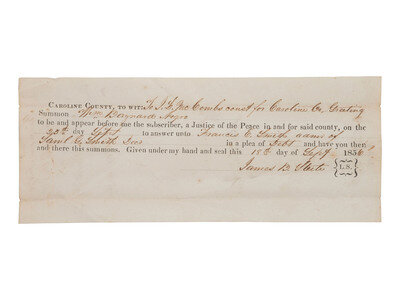 CAROLINE COUNTY, TO WIT: To J. F. McCombs const for Caroline Co, Greeting
Summon Wm Barnard Negro
to be and appear before me the subscriber, a Justice of the Peace in and for said county, on the
day Sept to answer unto Francis C. Smith admr of
Saml C. Smith Decd in a plea of Debt and have you then
and there this summons. Given under my hand and seal this 15th day of Sept 1856
James B. {L.S.}